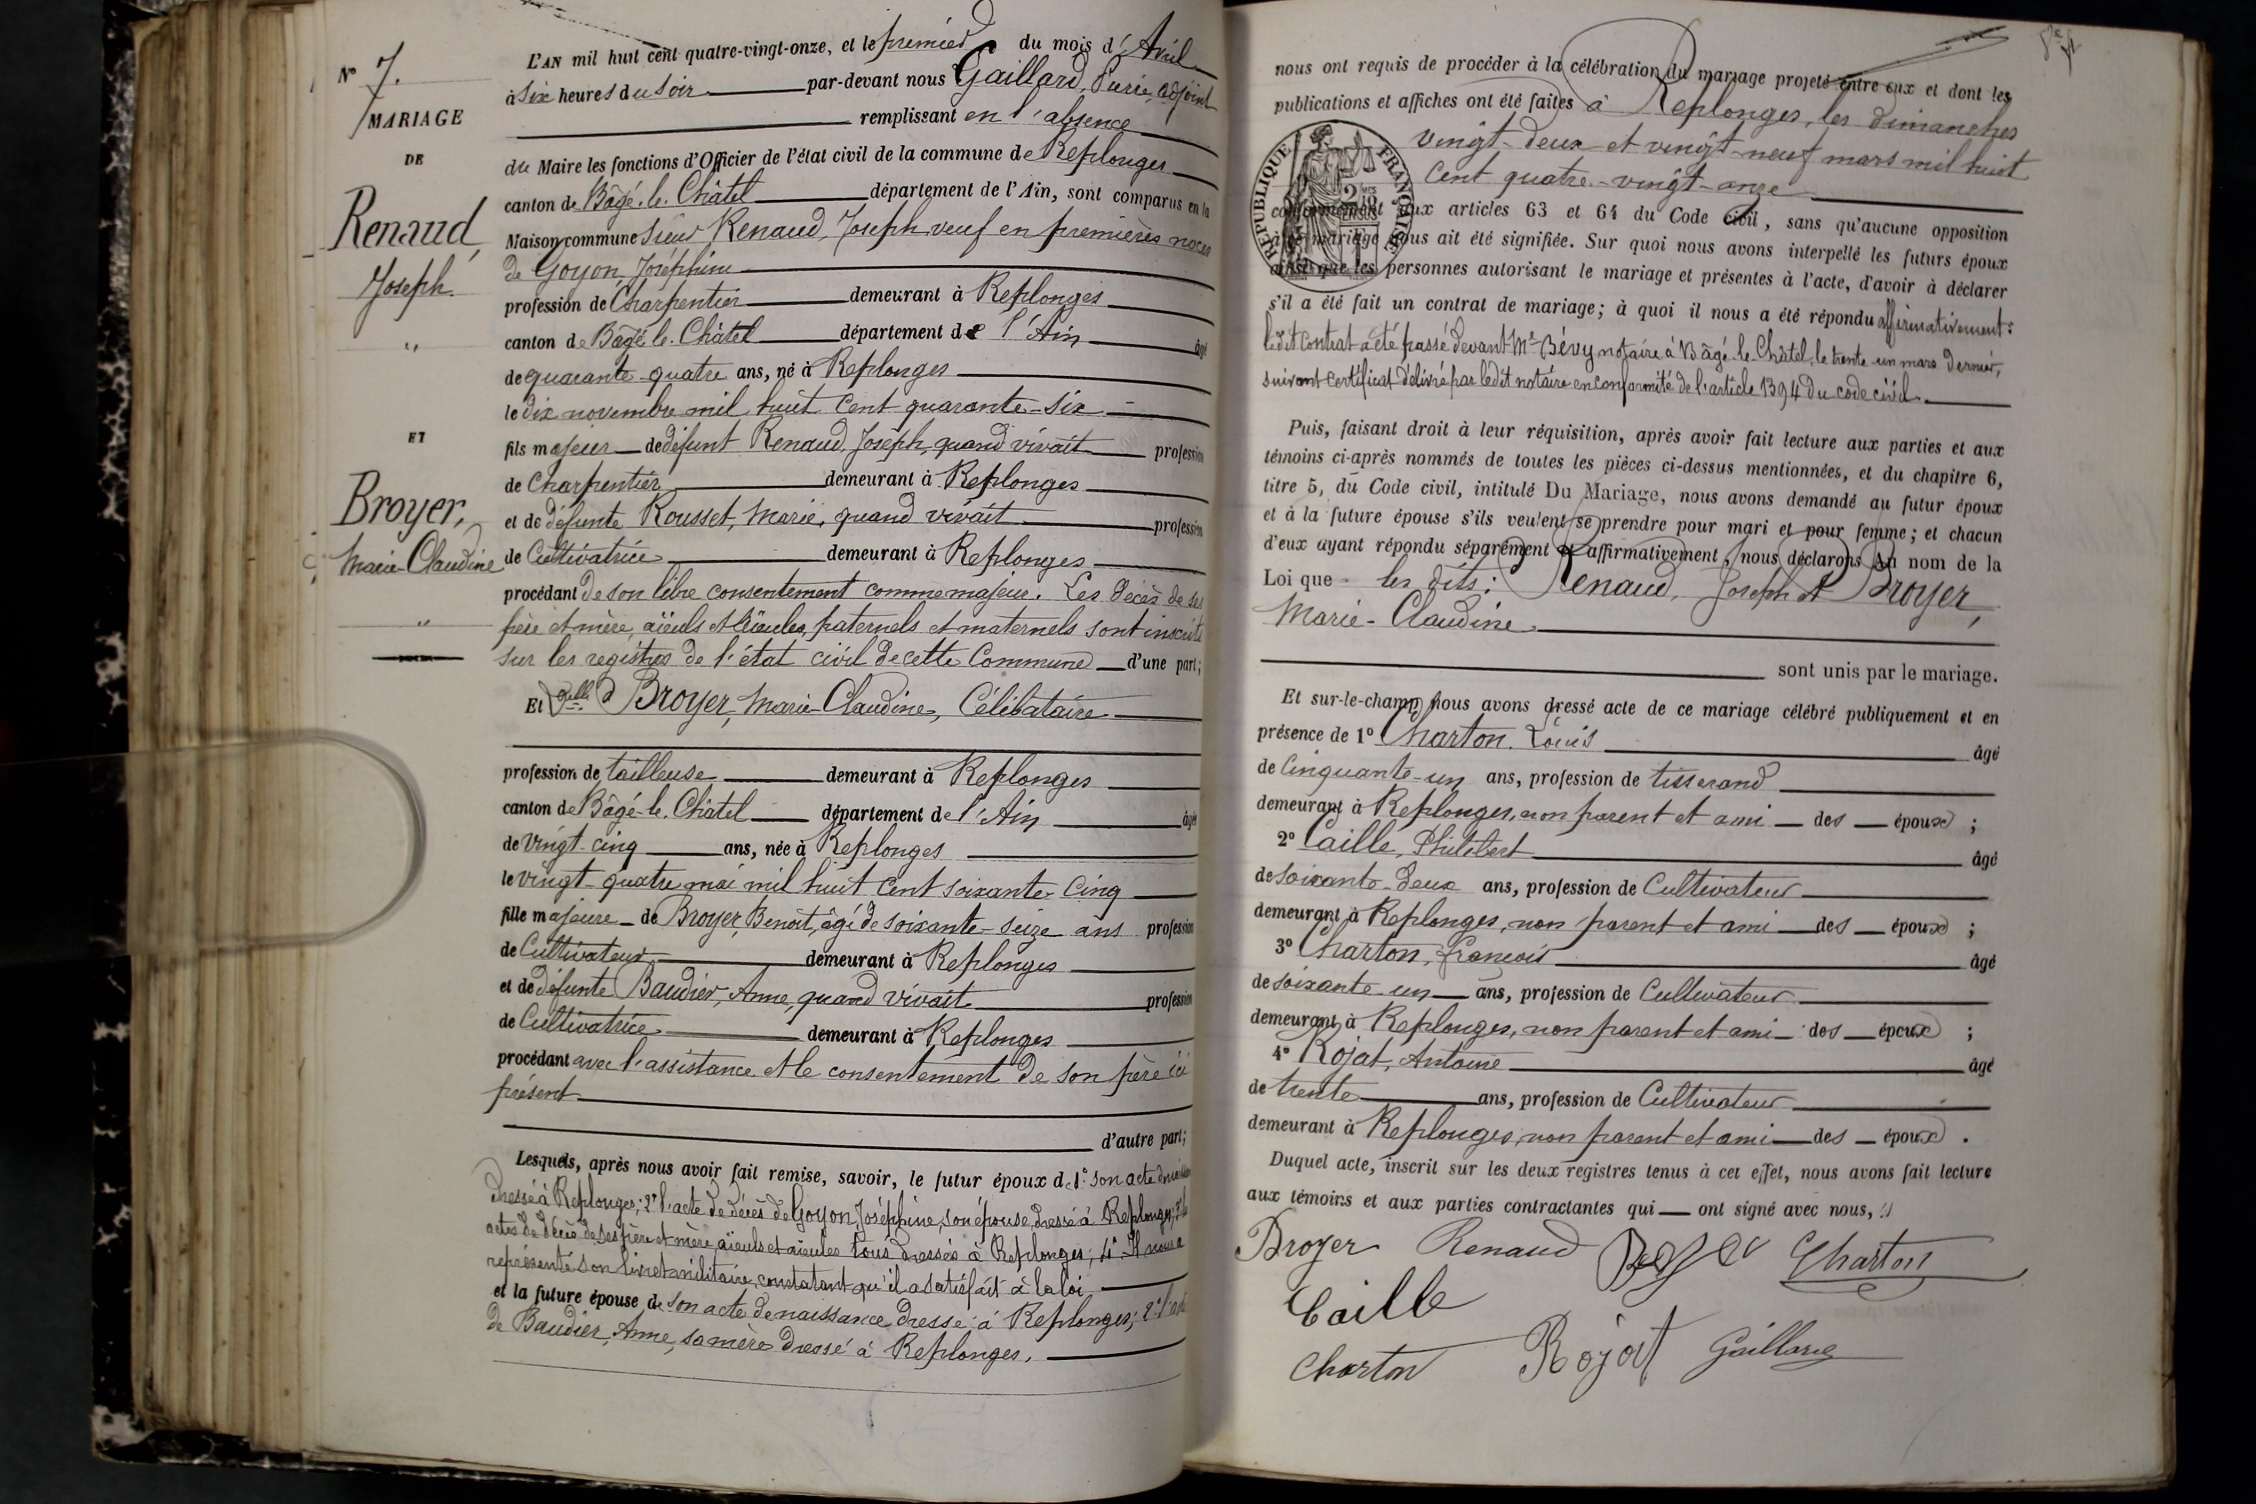 Nº 7.
MARIAGE
DE
Renaud,
Joseph.
"
ET
Broyer,
Marie-Claudine
"
L'AN mil huit cent quatre-vingt-onze, et le premier du mois d'Avril
à six heures du soir par-devant nous Gaillard, adjoint
remplissant en l'absence
du Maire les fonctions d'Officier de l'état civil de la commune de Replonges
canton de Bâgé-le-Châtel département de l'Ain, sont comparus en la
Maison commune sieur Renaud, Joseph, veuf en premières noces
de Goyon, Joséphine
profession de Charpentier demeurant à Replonges
canton de Bâgé-le-Châtel département de l'Ain âgé
de quarante-quatre ans, né à Replonges
le dix novembre mil huit cent quarante-six
fils majeur de défunt Renaud, Joseph, quand vivait profession
de Charpentier demeurant à Replonges
et de défunte Rousset, Marie, quand vivait profession
de Cultivatrice demeurant à Replonges
procédant de son libre consentement comme majeur. Les décès de ses
père et mère, aïeuls et aïeules, paternels et maternels sont inscrits
sur les registres de l'état civil de cette Commune d'une part;
Et Delle Broyer, Marie-Claudine, Célibataire
profession de tailleuse demeurant à Replonges
canton de Bâgé-le-Châtel département de l'Ain âgée
de vingt-cinq ans, née à Replonges
le vingt-quatre mai mil huit cent soixante-cinq
fille majeure de Broyer, Benoît, âgé de soixante-seize ans profession
de Cultivateur demeurant à Replonges
et de défunte Baudier, Anne, quand vivait profession
de Cultivatrice demeurant à Replonges
procédant avec l'assistance et le consentement de son père ici
présent
d'autre part;
Lesquels, après nous avoir fait remise, savoir, le futur époux de 1º son acte de naissance
dressé à Replonges; 2º l'acte de décès de Goyon, Joséphine, son épouse, dressé à Replonges; 3º les
actes de décès de ses père et mère, aïeuls et aïeules tous dressés à Replonges; 4º Il nous a
représenté son livret militaire, constatant qu'il a satisfait à la loi
et la future épouse, de son acte de naissance dressé à Replonges; 2º l'acte
de Baudier, Anne, sa mère dressé à Replonges.
nous ont requis de procéder à la célébration du mariage projeté entre eux et dont les
publications et affiches ont été faites à Replonges, les dimanches
vingt-deux et vingt-neuf mars mil huit
cent quatre-vingt-onze
RÉPUBLIQUE FRANÇAISE
conformément aux articles 63 et 64 du Code civil, sans qu'aucune opposition
à ce mariage nous ait été signifiée. Sur quoi nous avons interpellé les futurs époux
ainsi que les personnes autorisant le mariage et présentes à l'acte, d'avoir à déclarer
s'il a été fait un contrat de mariage; à quoi il nous a été répondu affirmativement:
ledit contrat a été passé devant Me Bévy notaire à Bâgé-le-Châtel, le trente-un mars dernier,
suivant certificat délivré par ledit notaire en conformité de l'article 1394 du code civil
Puis, faisant droit à leur réquisition, après avoir fait lecture aux parties et aux
témoins ci-après nommés de toutes les pièces ci-dessus mentionnées, et du chapitre 6,
titre 5, du Code civil, intitulé Du Mariage, nous avons demandé au futur époux
et à la future épouse s'ils veulent se prendre pour mari et pour femme; et chacun
d'eux ayant répondu séparément et affirmativement, nous déclarons au nom de la
Loi que les dits: Renaud, Joseph et Broyer,
Marie-Claudine
sont unis par le mariage.
Et sur-le-champ nous avons dressé acte de ce mariage célébré publiquement et en
présence de 1º Charton, Louis âgé
de Cinquante-un ans, profession de tisserand
demeurant à Replonges, non parent et ami des époux;
2º Caille, Philibert âgé
de soixante-deux ans, profession de Cultivateur
demeurant à Replonges, non parent et ami des époux;
3º Charton, François âgé
de soixante-un ans, profession de Cultivateur
demeurant à Replonges, non parent et ami des époux;
4º Rojat, Antoine âgé
de trente ans, profession de Cultivateur
demeurant à Replonges, non parent et ami des époux.
Duquel acte, inscrit sur les deux registres tenus à cet effet, nous avons fait lecture
aux témoins et aux parties contractantes qui ont signé avec nous,
Broyer Renaud Charton
Caille
Charton Rojat Gaillard